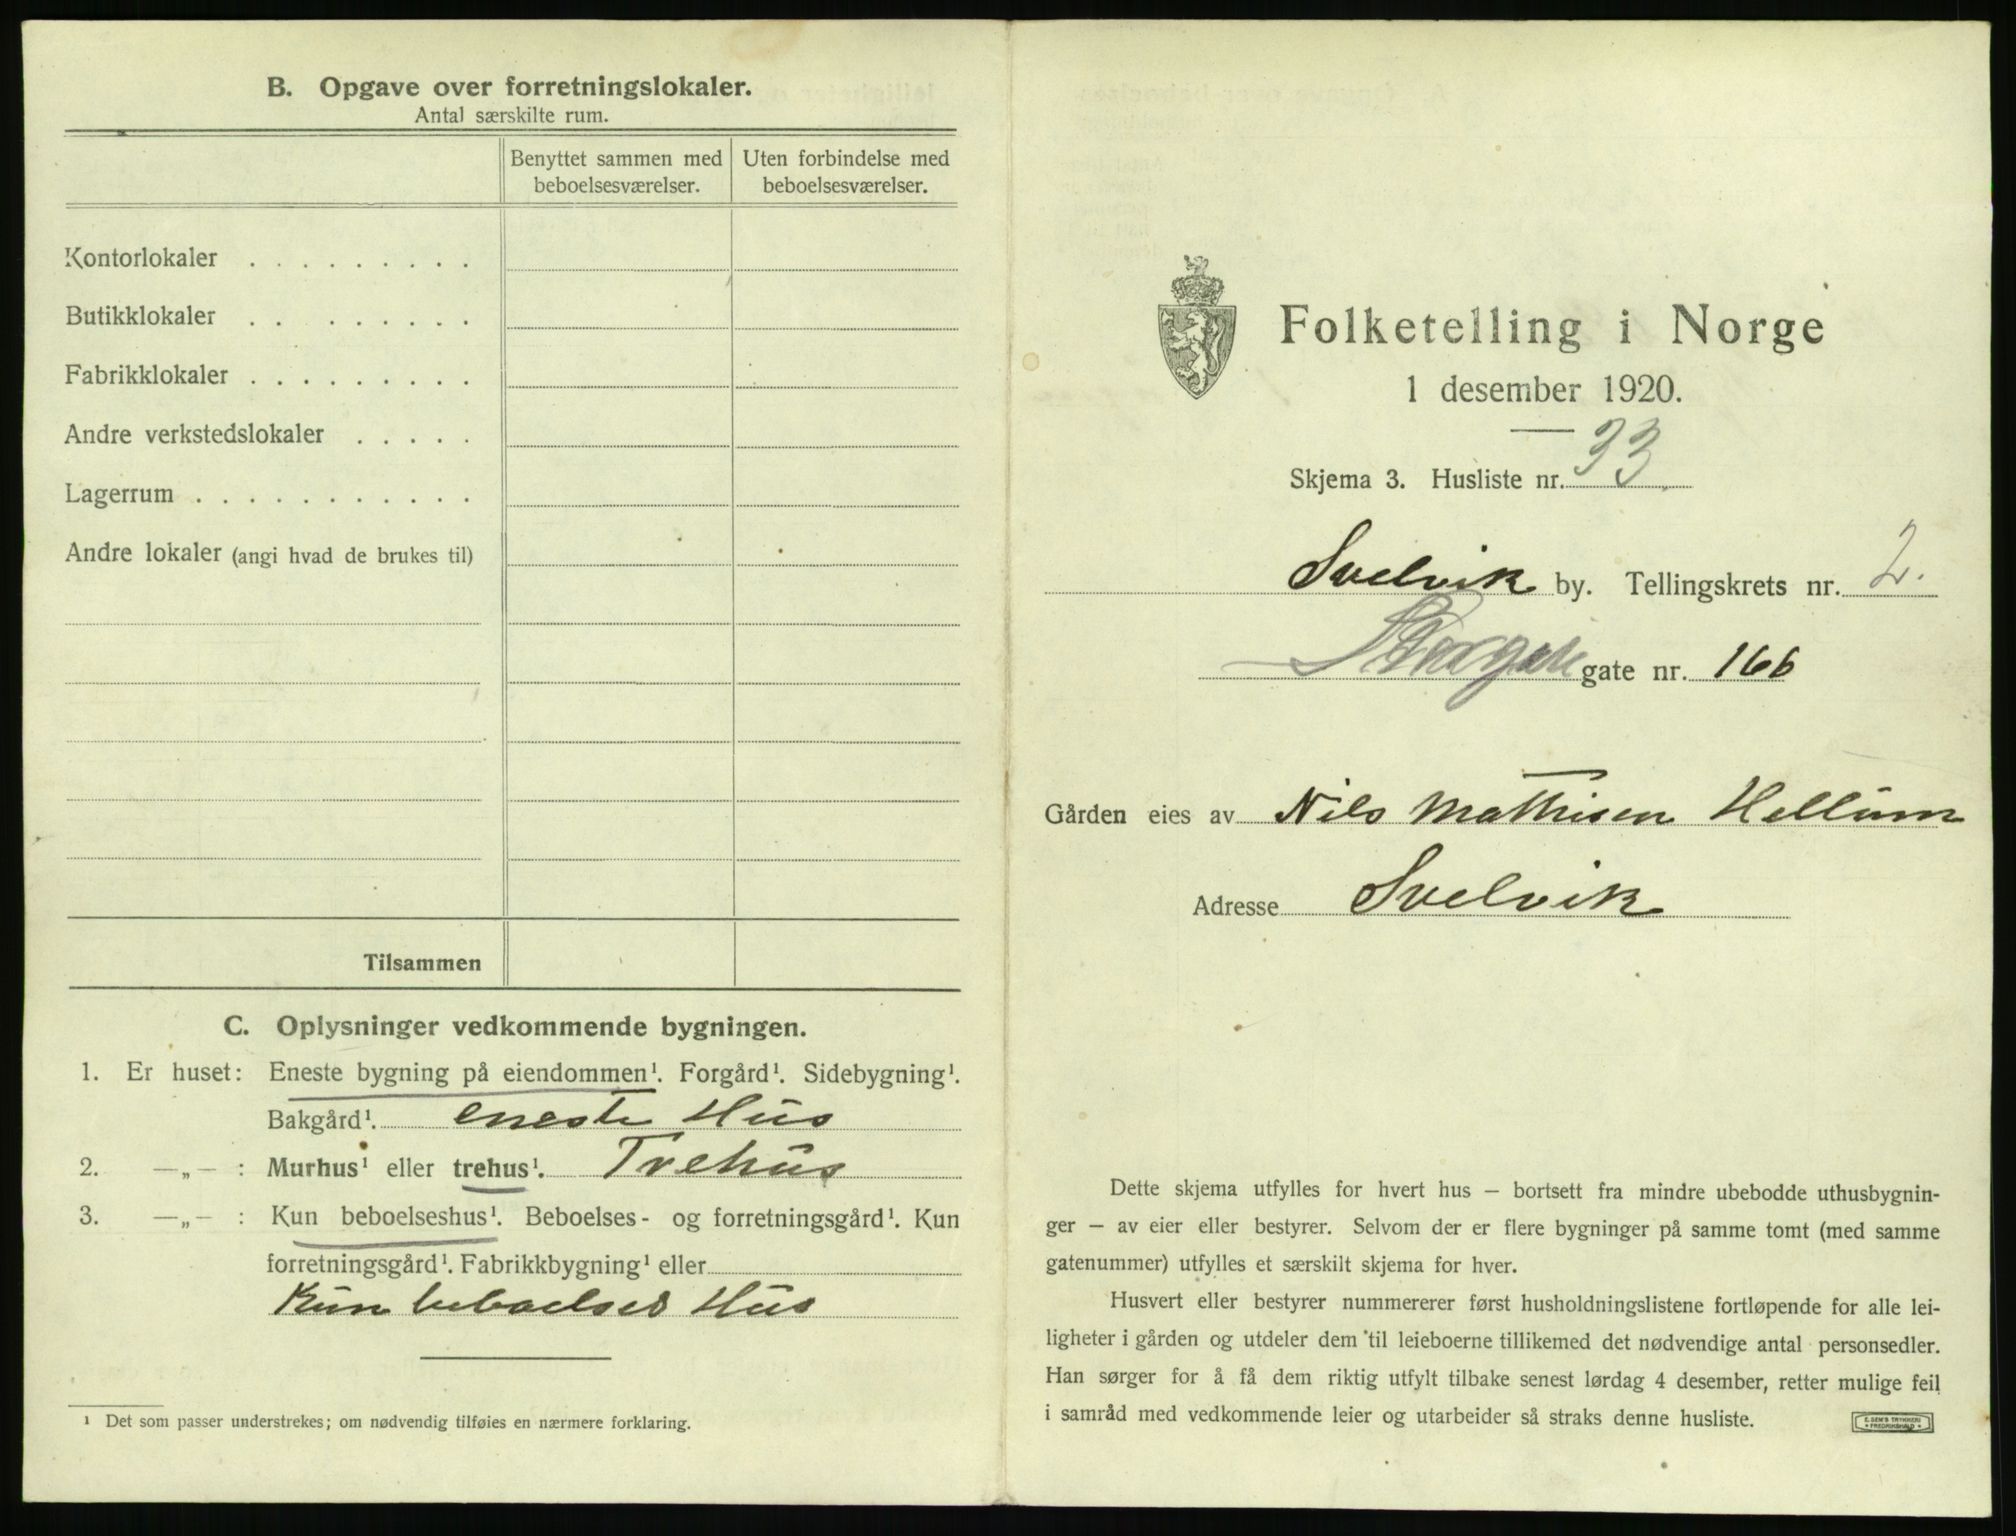 B. Opgave over forretningslokaler.
Antal særskilte rum.
Benyttet sammen med beboelsesværelser.
Uten forbindelse med beboelsesværelser.
Kontorlokaler . . . . . . . . .
Butikklokaler . . . . . . . .
Fabrikklokaler . . . . . . . . .
Andre verkstedslokaler . . . . .
Lagerrum . . . . . . . . . . .
Andre lokaler (angi hvad de brukes til)
Tilsammen
C. Oplysninger vedkommende bygningen.
1. Er huset: Eneste bygning på eiendommen¹. Forgård¹. Sidebygning¹.
Bakgård¹. eneste Hus
2. —„— : Murhus¹ eller trehus¹. Trehus
3. —„— : Kun beboelseshus¹. Beboelses- og forretningsgård¹. Kun
forretningsgård¹. Fabrikkbygning¹ eller
Kun beboelses Hus
¹ Det som passer understrekes; om nødvendig tilføies en nærmere forklaring.
Folketelling i Norge
1 desember 1920.
Skjema 3. Husliste nr. 33
Svelvik by. Tellingskrets nr. 2.
gate nr. 166
Gården eies av Nils Mathisen Hellum
Adresse Svelvik
Dette skjema utfylles for hvert hus — bortsett fra mindre ubebodde uthusbygnin-
ger — av eier eller bestyrer. Selvom der er flere bygninger på samme tomt (med samme
gatenummer) utfylles et særskilt skjema for hver.
Husvert eller bestyrer nummererer først husholdningslistene fortløpende for alle lei-
ligheter i gården og utdeler dem til leieboerne tillikemed det nødvendige antal personsedler.
Han sørger for å få dem riktig utfylt tilbake senest lørdag 4 desember, retter mulige feil
i samråd med vedkommende leier og utarbeider så straks denne husliste.
E. SEM'S TRYKKERI
FREDRIKSHALD